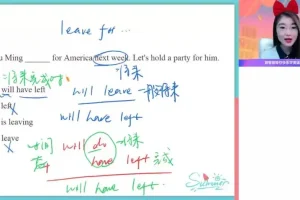 leave for...
Ming ______ for America next week. Let's hold a party for him.
=将来完成时
将来
will have left
will leave 一般将来
left
will have left
is leaving
时间 will do 将来
leave
have left 完成
will have left
Summer